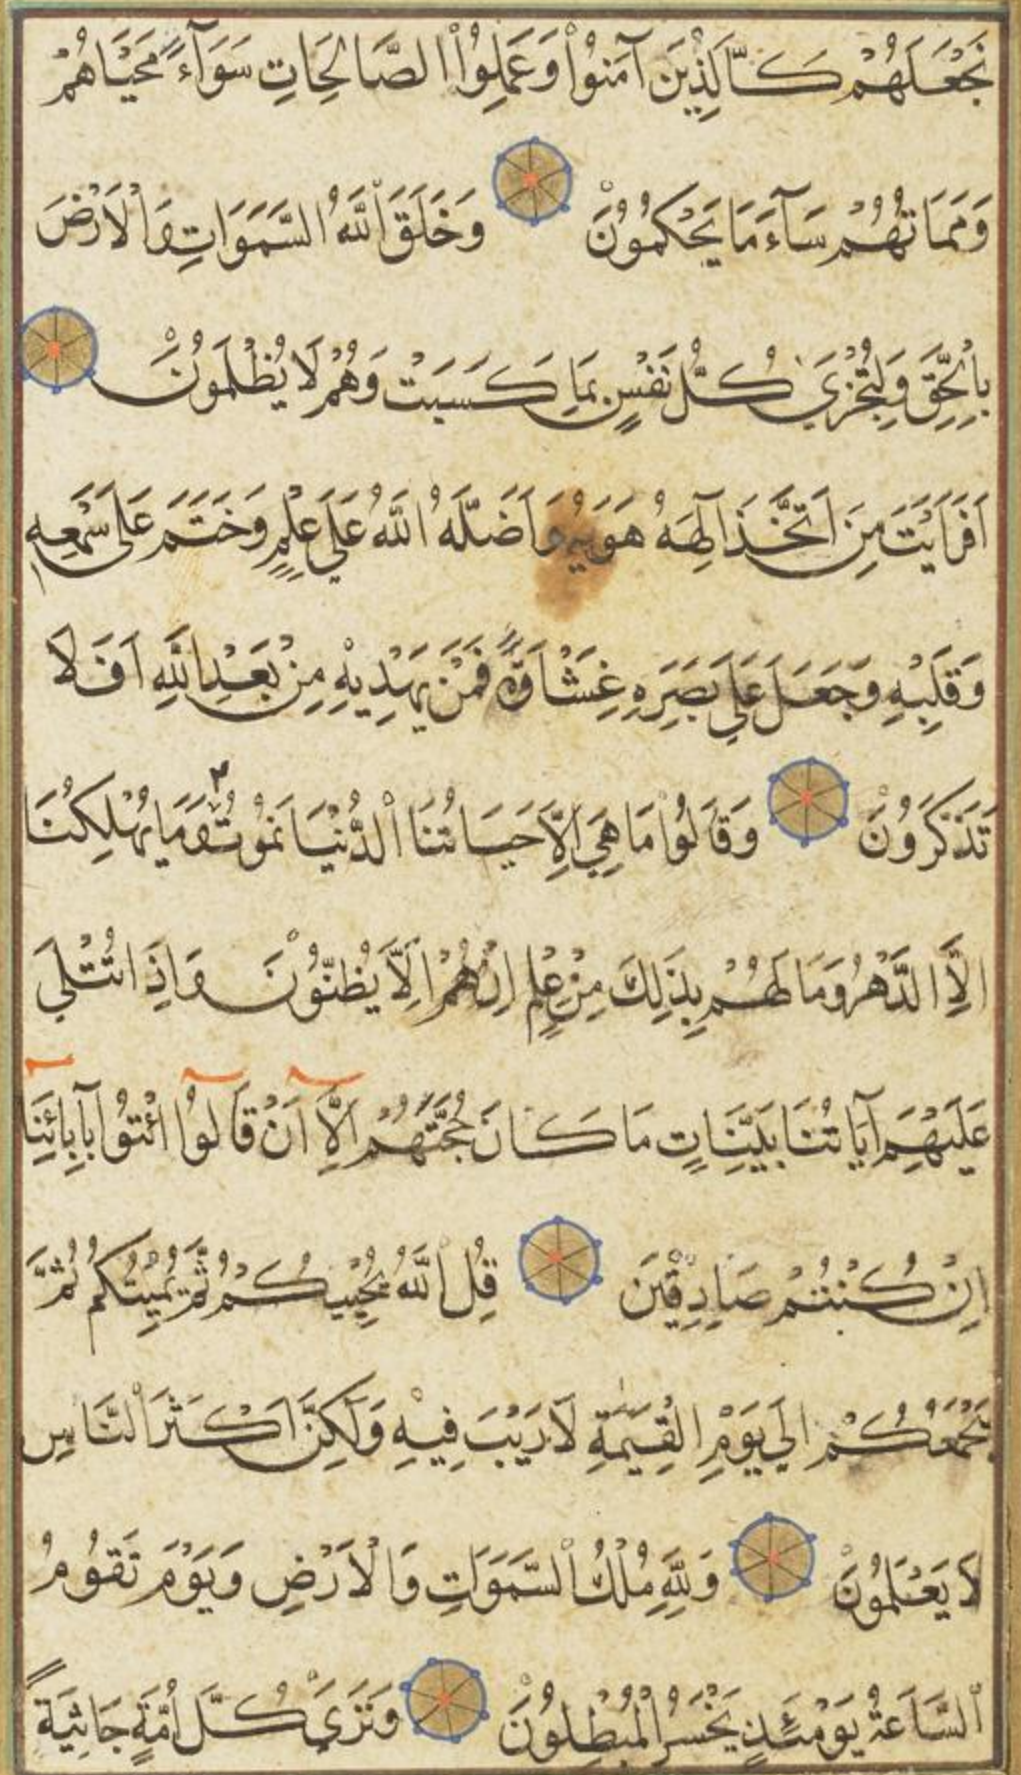 نَجْعَلَهُمْ كَالَّذِينَ آمَنُوْا وَعَمِلُوْا الصَّالِحَاتِ سَوَآءً مَحْيَاهُمْ
وَمَمَاتُهُمْ سَآءَ مَا يَحْكُمُوْنَ وَخَلَقَ اللّٰهُ السَّمَوَاتِ وَالْاَرْضَ
بِالْحَقِّ وَلِتُجْزَي كُلُّ نَفْسٍ بِمَا كَسَبَتْ وَهُمْ لَا يُظْلَمُونَ
اَفَرَاَيْتَ مَنِ اتَّخَذَ آلِهَهُ هَوَيهُ وَاَضَلَّهُ اللّٰهُ عَلَي عِلْمٍ وَخَتَمَ عَلَى سَمْعِهِ
وَقَلْبِهِ وَجَعَلَ عَلَي بَصَرِهِ غِشَاوَةً فَمَنْ يَهْدِيْهِ مِنْ بَعْدِ اللّٰهِ اَفَلَا
تَذَكَّرُوْنَ وَقَالُوْا مَا هِيَ اِلَّا حَيَاتُنَا الدُّنْيَا نَمُوْتُ وَمَا يُهْلِكُنَا
اِلَّا الدَّهْرُ وَمَا لَهُمْ بِذَلِكَ مِنْ عِلْمٍ اِنْ هُمْ اِلَّا يَظُنُّوْنَ وَاِذَا تُتْلَي
عَلَيْهِمْ آيَاتُنَا بَيِّنَاتٍ مَا كَانَ حُجَّتَهُمْ اِلَّآ اَنْ قَالُوا ائْتُوْا بِآبَائِنَا
اِنْ كُنْتُمْ صَادِقِيْنَ قُلِ اللّٰهُ يُحْيِيكُمْ ثُمَّ يُمِيْتُكُمْ ثُمَّ
يَجْمَعُكُمْ اِلَي يَوْمِ الْقِيَمَةِ لَا رَيْبَ فِيْهِ وَلَكِنَّ اَكْثَرَ النَّاسِ
لَا يَعْلَمُوْنَ وَلِلّٰهِ مُلْكُ السَّمَوَاتِ وَالْاَرْضِ وَيَوْمَ تَقُوْمُ
السَّاعَةُ يَوْمَئِذٍ يَخْسَرُ الْمُبْطِلُوْنَ وَتَرَي كُلَّ اُمَّةٍ جَاثِيَةً